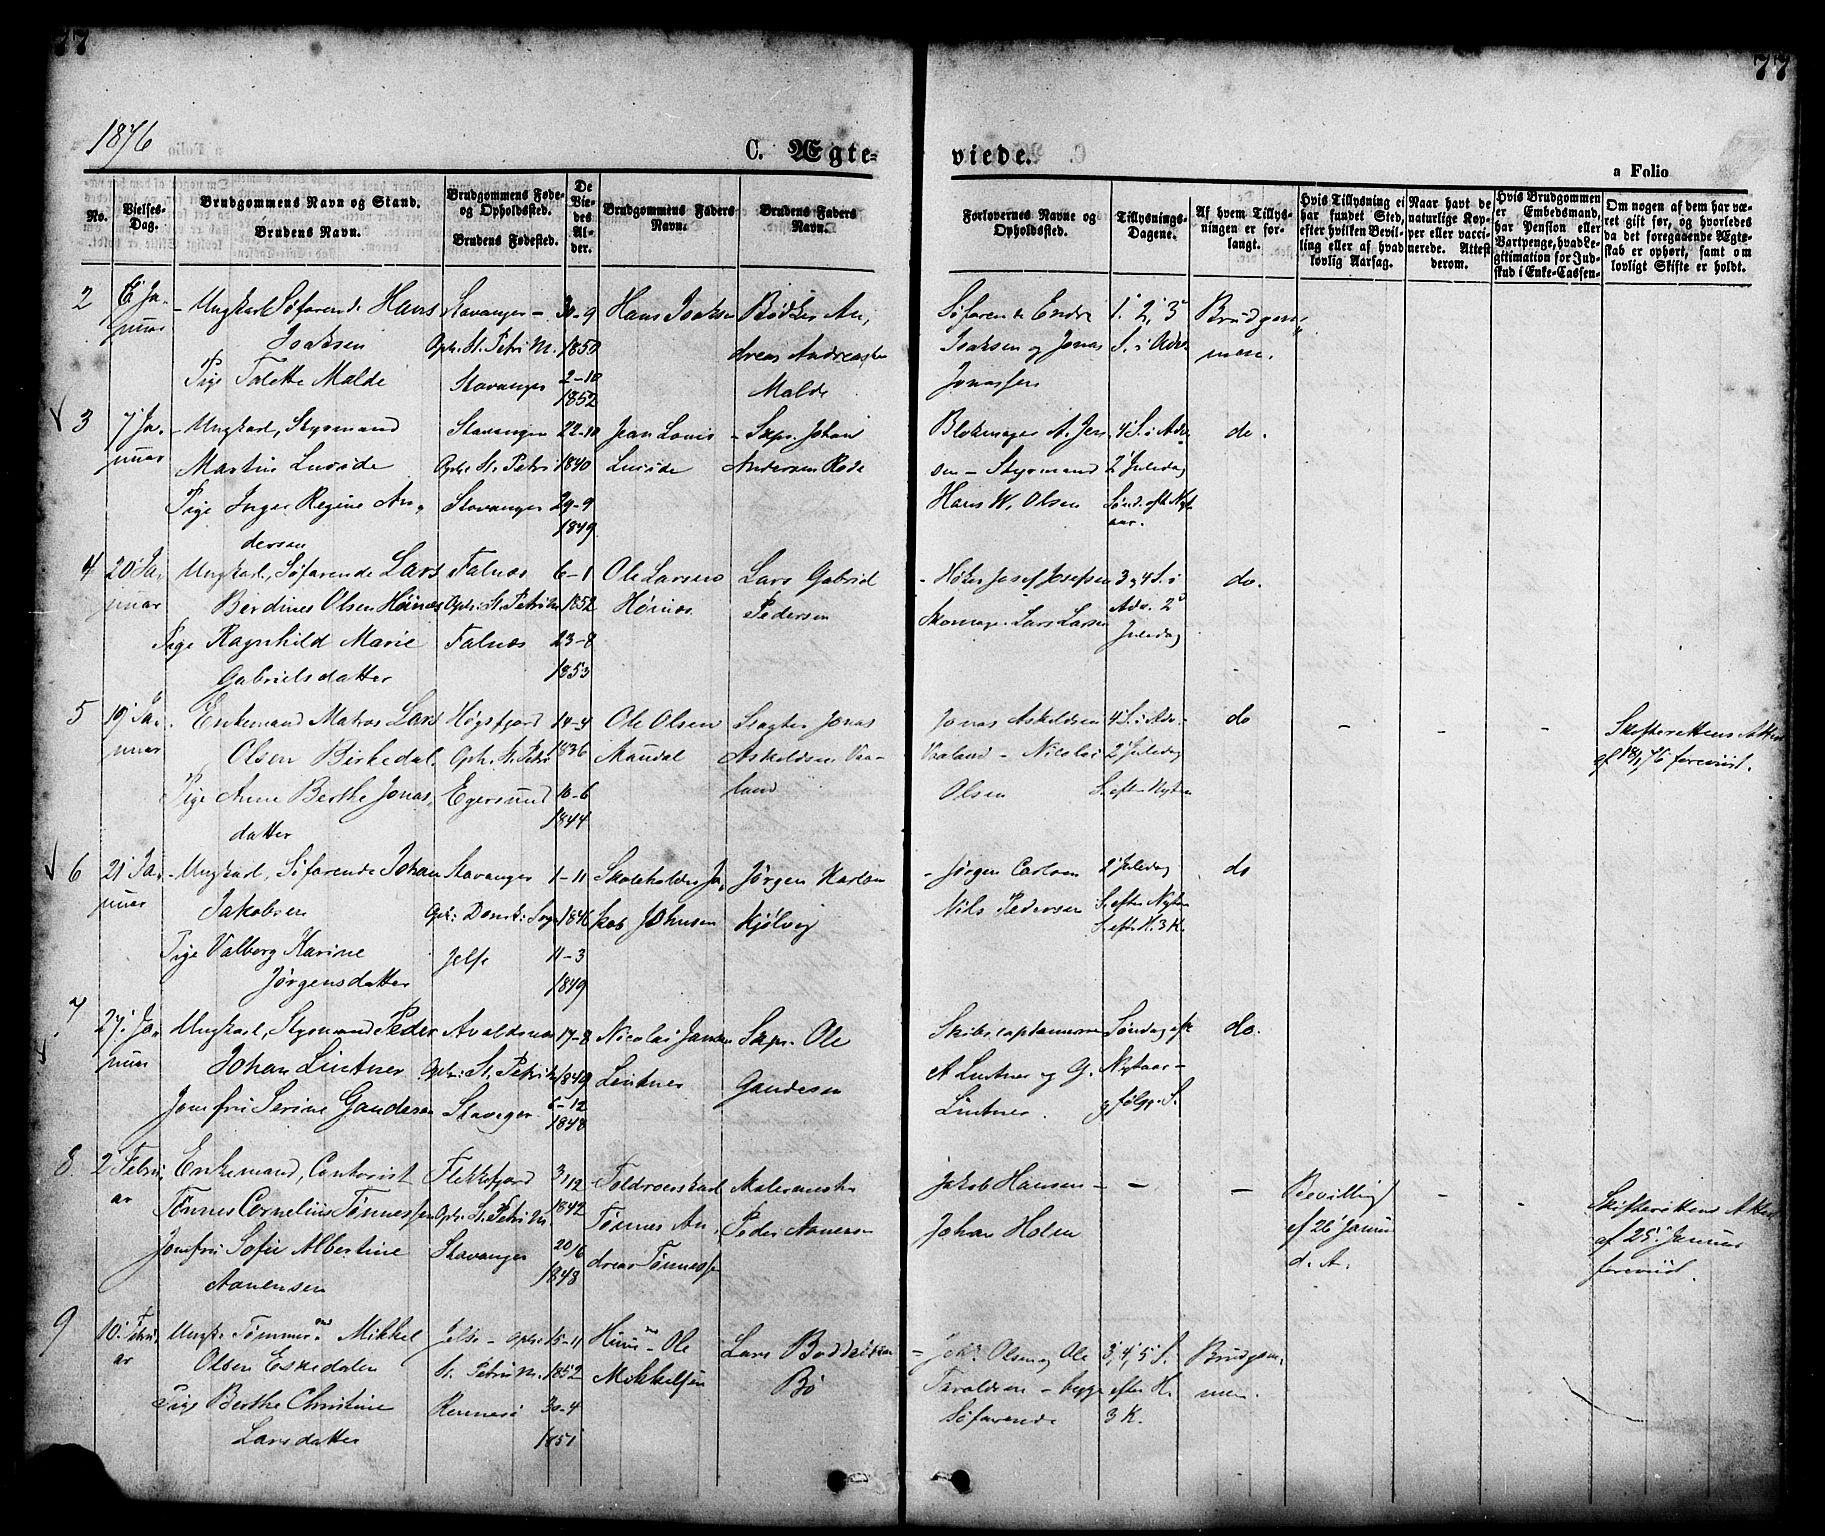 77
77
1876
C. Ægte-
viede.
a Folio
No.
Vielses-
Dag.
Brudgommens Navn og Stand.
Brudens Navn.
Brudgommens Føde-
og Opholdssted.
Brudens Fødested.
De
Vie-
des
Al-
der.
Brudgommens Faders
Navn.
Brudens Faders
Navn.
Forlovernes Navne og
Opholdssted.
Tillysnings-
Dagene.
Af hvem Tillys-
ningen er for-
langt.
Hvis Tillysning ei
har fundet Sted,
efter hvilken Bevil-
ling eller af hvad
lovlig Aarsag.
Naar havt de
naturlige Kop-
per eller vacci-
nerede. Attest
derom.
Hvis Brudgommen
er Embedsmand,
har Pension eller
Vartpenge, hvad Le-
gitimation for Ind-
skud i Enke-Cassen-
Om nogen af dem har væ-
ret gift før, og hvorledes
da det foregaaende Ægte-
skab er ophørt, samt om
lovligt Skifte er holdt.
2
6 Ja-
nuar
Ungkarl Søfarende Hans
Isaksen
Pige Talette Malde
Stavanger -
Oph. St. Petri M.
Stavanger
30-9
1850
2-10
1852
Hans Isaksen
Bødker An,
dreas Andreassen
Malde
Søfarende Endre
Isaksen og Jonas
Jonassen
1. 2, 3
S. i Adv.
Brudgom,
men.
3
7 Ja,
nuar
Ungkarl, Styrmand
Martin Lusøde
Pige Inger Regine An,
dersen
Stavanger
Oph. St. Petri
Stavanger
22-10
1840
29-9
1849
Jean Louis
Lusøde
Skpr. Johan
Andersen Rode
Blokmager A. Jen
sen - Styrmand
Hans W. Olsen
4 S. i Adv.
2 Juledag
Sønd. eft. Nyt
aar.
do.
4
20 Ja,
nuar
Ungkarl, Søfarende Lars
Berdines Olsen Høines
Pige Ragnhild Marie
Gabrielsdatter
Falnæs
Oph. St. Petri M.
Falnæs
6-1
1852
23-8
1853
Ole Larsen
Høines
Lars Gabriel
Pedersen
Josef Josefsen
Skomag. Lars Larsen
3 og 4 S. i
Adv. 2
Juledag
do.
5
19 Ja,
nuar
Enkemand Matros Lars
Olsen Birkedal
Pige Anne Berthe Jonas,
datter
Høgsfjord
Oph. St. Petri
Egersund
14-4
1836
10-6
1844
Ole Olsen
Maudal
Slagter Jonas
Askeldsen Vaa-
land
Jonas Askeldsen
Vaaland - Nicolai
Olsen
4 S. i Adv.
2 Juledag
S. eft. Nytaar
do
-
-
-
Skifterettens Attest
af 18/1 76 foreviist.
6
21 Ja,
nuar
Ungkarl, Søfarende Johan
Jakobsen
Pige Valborg Karine
Jørgensdatter
Stavanger
Oph: Domk: Sogn
Jelse
1-11
1846
11-3
1849
Skoleholder Ja,
kob Johnsen
Jørgen Karlsen
Kjølvig
Jørgen Carlsen
Nils Pedersen
2 Juledag
S. efter Nytaar
S. eft. H. 3 K.
do
7
27. Ja,
nuar
Ungkarl, Styrmand Peder
Johan Lintner
Jomfru Serine Gaudesen
Avaldsnæs
Oph: St. Petri M
Stavanger
17-8
1840
6-12
1848
Nicolai Jansen
Lintner
Skpr. Ole
Gaudesen
Skibscaptainerne
A Lintner og G.
Lintner.
Søndag eft
Nytaar -
og følgg. S.
do.
8
2 Febru,
ar
Enkemand, Contorist
Tønnes Cornelius Tønnessen
Jomfru Sofie Albertine
Aanensen
Flekkefjord
Oph. St. Petri M.
Stavanger
3/12
1842
20/6
1848
Toldroerskarl
Tønnes An,
dreas Tønnessen
Malermester
Peder Aanensen
Jakob Hansen
Johan Holm
-
-
Bevilling
af 26 Januar
d. A.
-
-
Skifterettens Attest
af 25 Januar
foreviist.
9
10. Febru,
ar
Ungk. Tømmermd Mikkel
Olsen Eskedalen
Pige Berthe Christine
Larsdatter
Jelse - Oph:
St. Petri M.
Rennesø
15-11
1852
30-4
1851
Huusmd - Ole
Mikkelsen
Lars Boddelsen
Bø
Johs. Olsen og Ole
Taraldsen - begge
Søfarende
3, 4, 5 S.
efter H.
3 K.
Brudgom,
men.